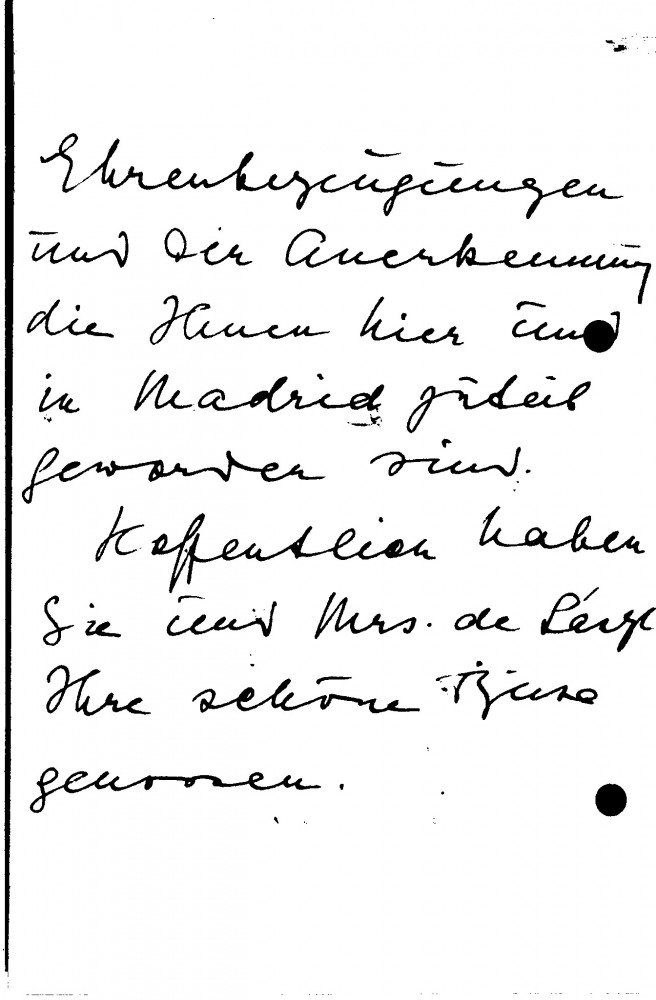 Ehrenbezeugungen
und der Anerkennung
die Ihnen hier und
in Madrid zuteil
geworden sind.
Hoffentlich haben
Sie und Mrs. de László
Ihre schöne Reise
genossen.